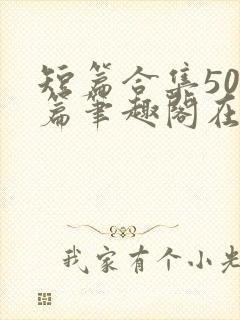 短篇合集50
篇笔趣阁在
我家有个小